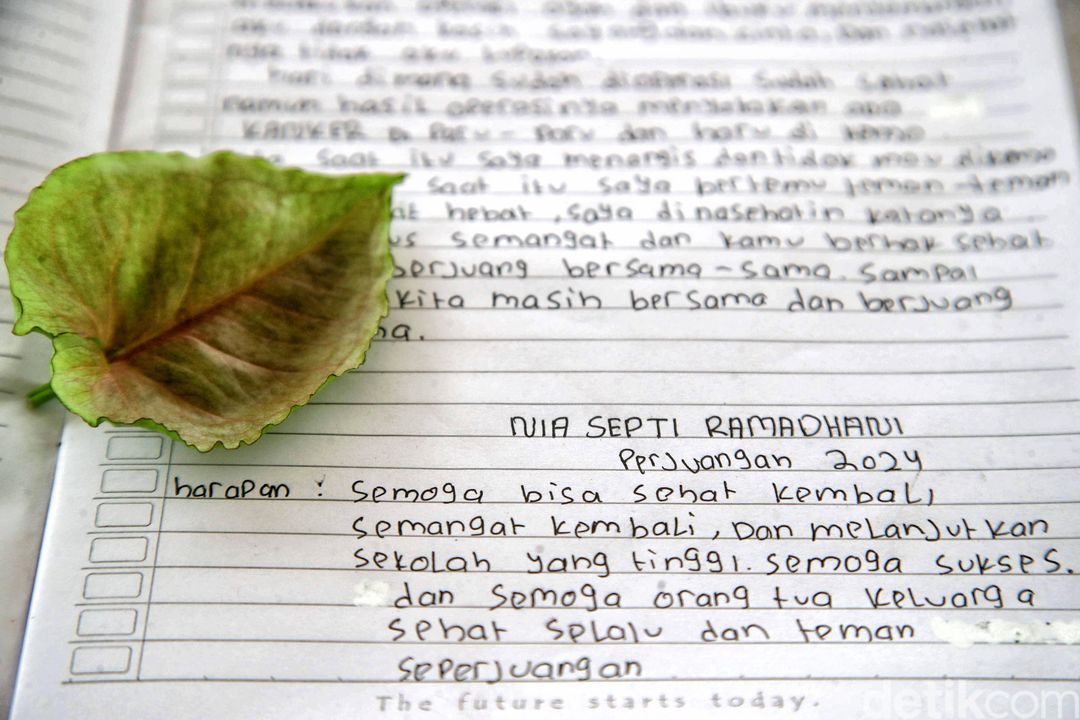 ada tidak aku
hari dimana sudah dioperasi sudah sehat
namun hasil operasinya menyatakan ada
KANKER Paru - Paru dan haru di kemo
saat itu saya menangis dan tidak mau dikemo
saat itu saya bertemu teman-teman
hebat, saya dinasehatin katanya
semangat dan kamu berhak sehat
berjuang bersama-sama. Sampai
kita masih bersama dan berjuang
NIA SEPTI RAMADHANI
Perjuangan 2024
harapan : Semoga bisa sehat kembali,
semangat kembali, Dan melanjutkan
sekolah yang tinggi. semoga sukses.
dan semoga orang tua keluarga
sehat selalu dan teman
seperjuangan
The future starts today.
detikcom